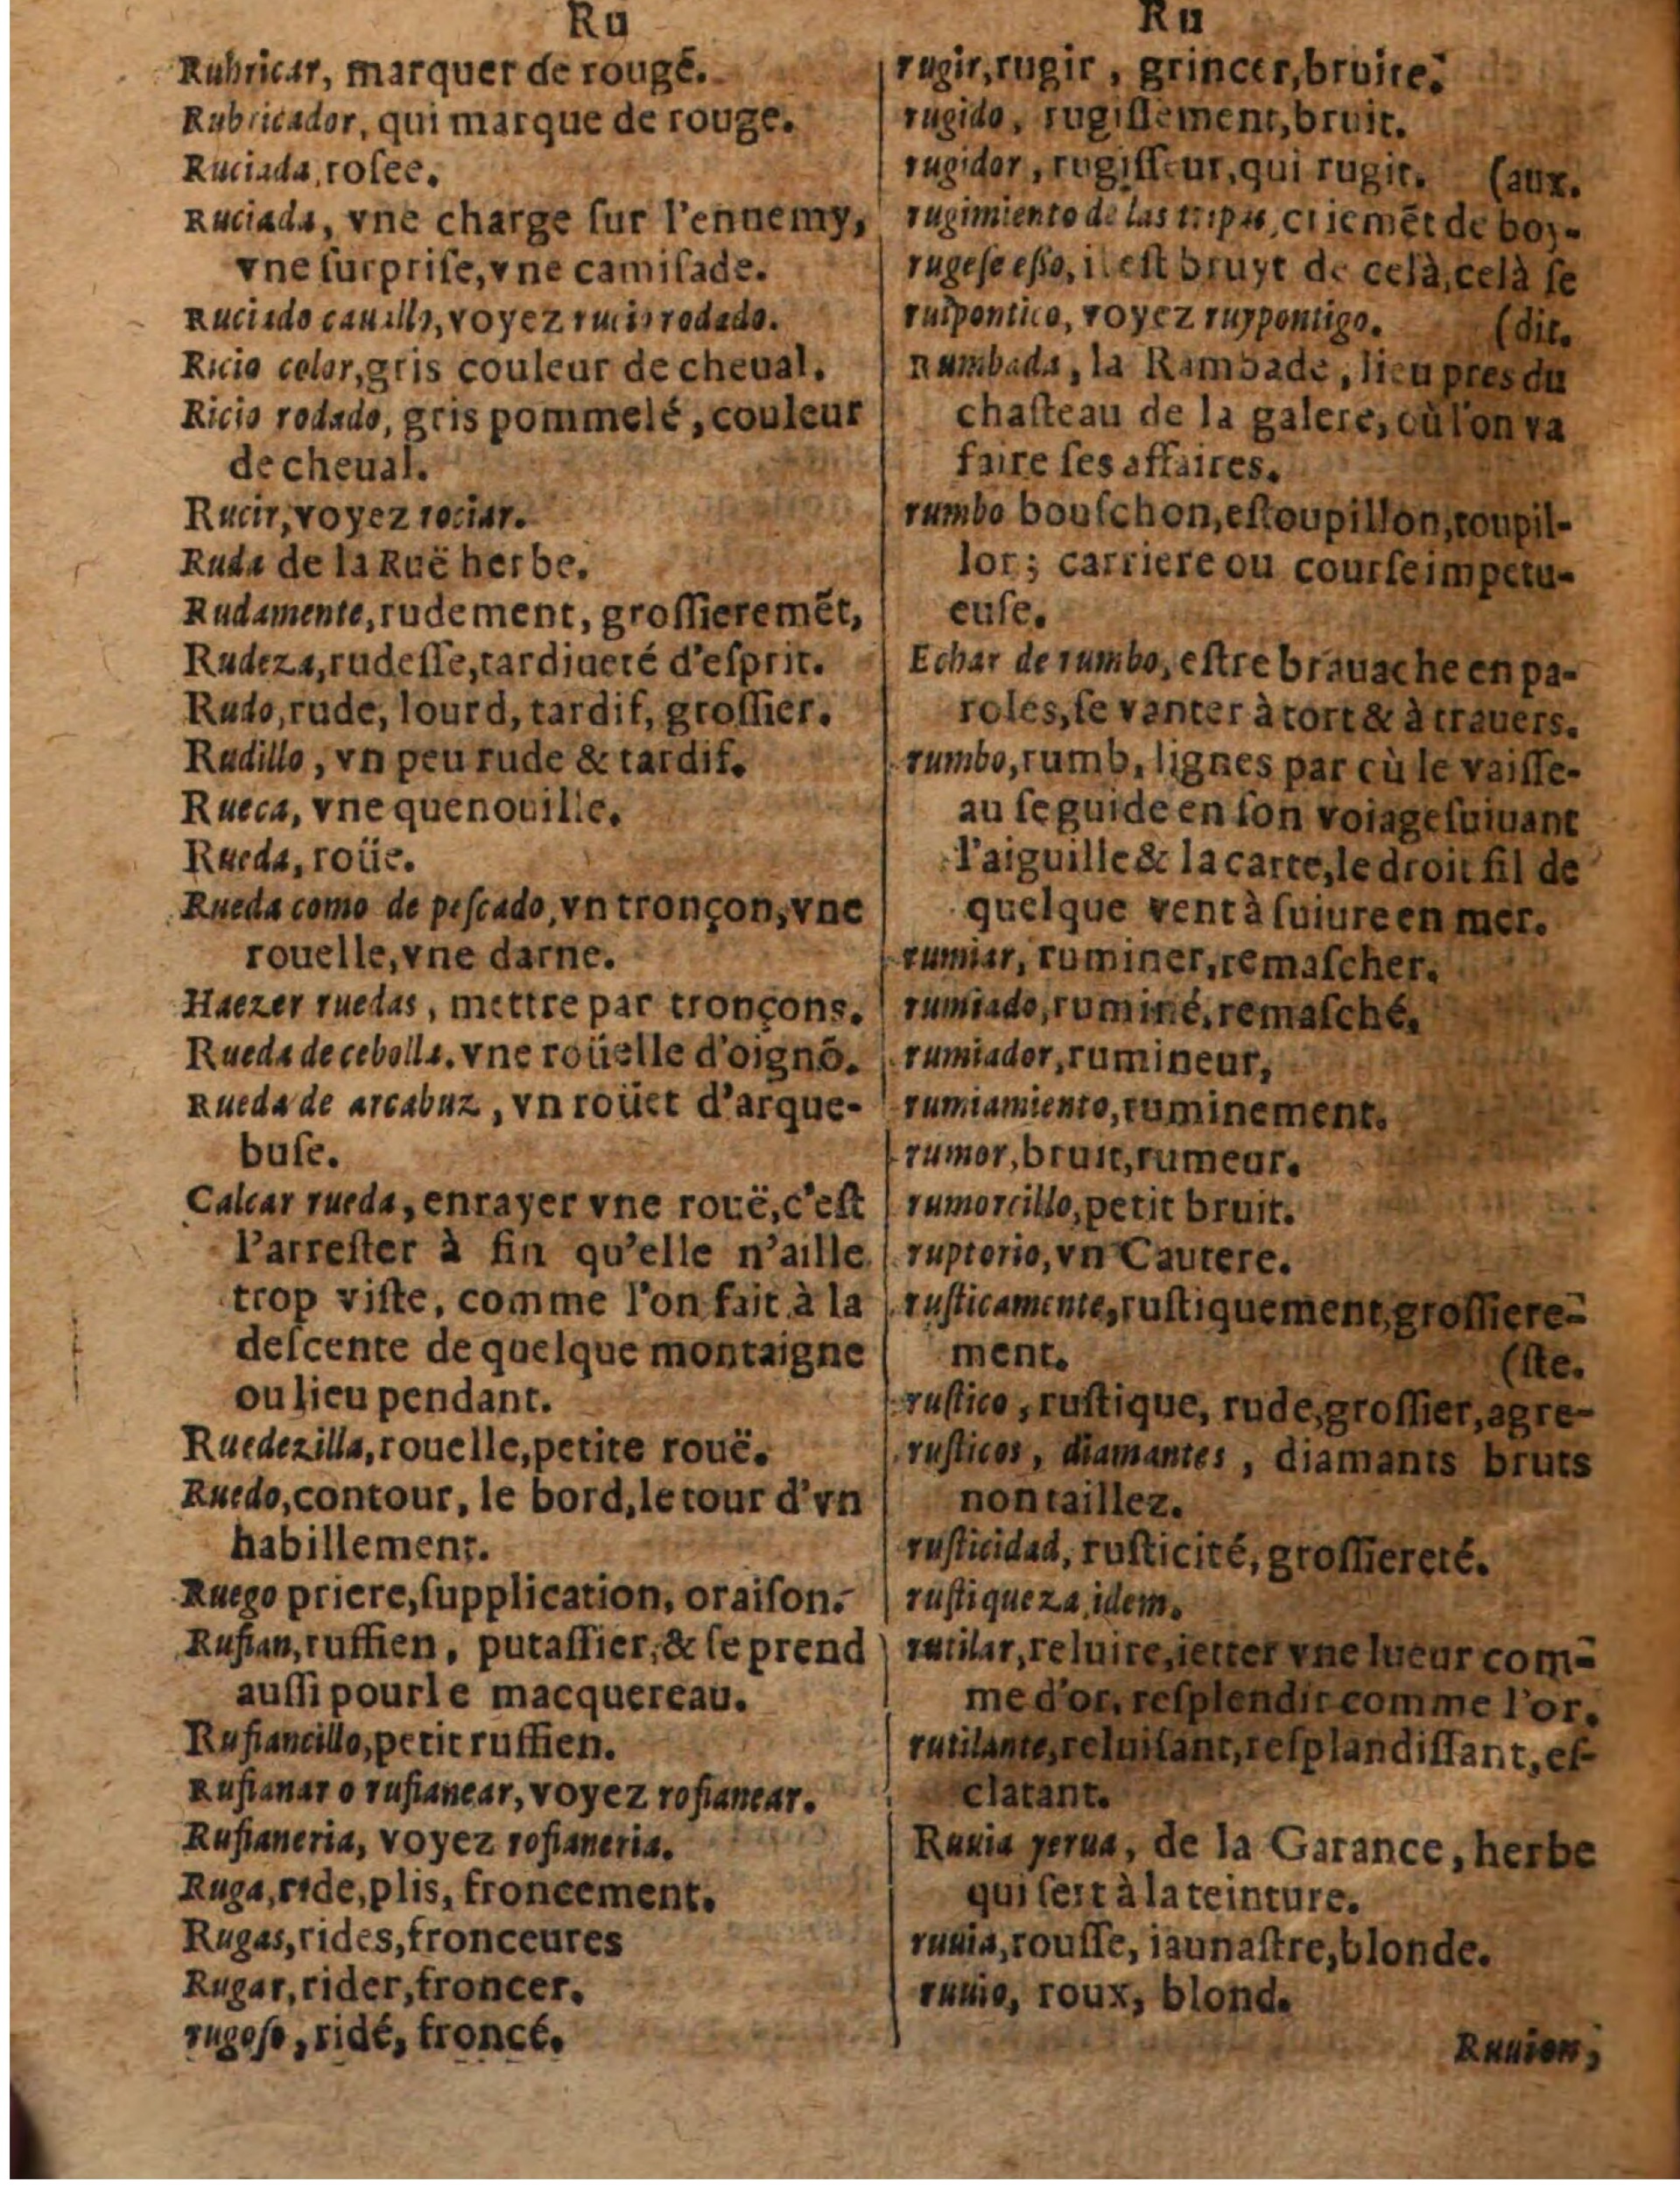 Ru
Rubricar, marquer de rougé.
Rubricador, qui marque de rouge.
Ruciada, roſee.
Ruciada, vne charge ſur l'ennemy,
vne ſurpriſe, vne camiſade.
Ruciado cauallo, voyez rucio rodado.
Ricio color, gris couleur de cheual.
Ricio rodado, gris pommelé, couleur
de cheual.
Rucir, voyez rociar.
Ruda de la Ruë herbe.
Rudamente, rudement, groſſieremẽt,
Rudeza, rudeſſe, tardiueté d'eſprit.
Rudo, rude, lourd, tardif, groſſier.
Rudillo, vn peu rude & tardif.
Rueca, vne quenouille.
Rueda, roüe.
Rueda como de peſcado, vn tronçon, vne
rouelle, vne darne.
Haezer ruedas, mettre par tronçons.
Rueda de cebolla. vne roüelle d'oignõ.
Rueda de arcabuz, vn roüet d'arque-
buſe.
Calcar rueda, enrayer vne rouë, c'eſt
l'arreſter à fin qu'elle n'aille
trop viſte, comme l'on fait à la
deſcente de quelque montaigne
ou lieu pendant.
Ruedezilla, rouelle, petite rouë.
Ruedo, contour, le bord, le tour d'vn
habillement.
Ruego priere, ſupplication, oraiſon.
Rufian, ruffien, putaſſier, & ſe prend
auſſi pourl e macquereau.
Rufiancillo, petit ruffien.
Rufianar o rufianear, voyez rofianear.
Rufianeria, voyez rofianeria.
Ruga, ride, plis, froncement.
Rugas, rides, fronceures
Rugar, rider, froncer.
rugoſo, ridé, froncé.
Ru
rugir, rugir, grincer, bruire.
rugido, rugiſſement, bruit.
rugidor, rugiſſeur, qui rugit. (aux.
rugimiento de las tripas, criemẽt de boy-
rugeſe eſſo, il eſt bruyt de celà, celà ſe
ruipontico, voyez ruypontigo. (dit.
Rumbada, la Rambade, lieu pres du
chaſteau de la galere, où l'on va
faire ſes affaires.
rumbo bouſchon, eſtoupillon, toupil-
lor; carriere ou courſe impetu-
euſe.
Echar de rumbo, eſtre brauache en pa-
roles, ſe vanter à tort & à trauers.
rumbo, rumb, lignes par cù le vaiſſe-
au ſe guide en ſon voiage ſuiuant
l'aiguille & la carte, le droit fil de
quelque vent à ſuiure en mer.
rumiar, ruminer, remaſcher.
rumiado, ruminé, remaſché.
rumiador, rumineur,
rumiamiento, ruminement.
rumor, bruit, rumeur.
rumorcillo, petit bruit.
ruptorio, vn Cautere.
ruſticamente, ruſtiquement, groſſiere-
ment. (ſte.
ruſtico, ruſtique, rude, groſſier, agre-
ruſticos, diamantes, diamants bruts
non taillez.
ruſticidad, ruſticité, groſſiereté.
ruſtiqueza, idem.
rutilar, reluire, ietter vne lueur com-
me d'or, reſplendir comme l'or.
rutilante, reluiſant, reſplandiſſant, eſ-
clatant.
Ruuia yerua, de la Garance, herbe
qui ſert à la teinture.
ruuia, rouſſe, iaunaſtre, blonde.
ruuio, roux, blond.
Ruuion,